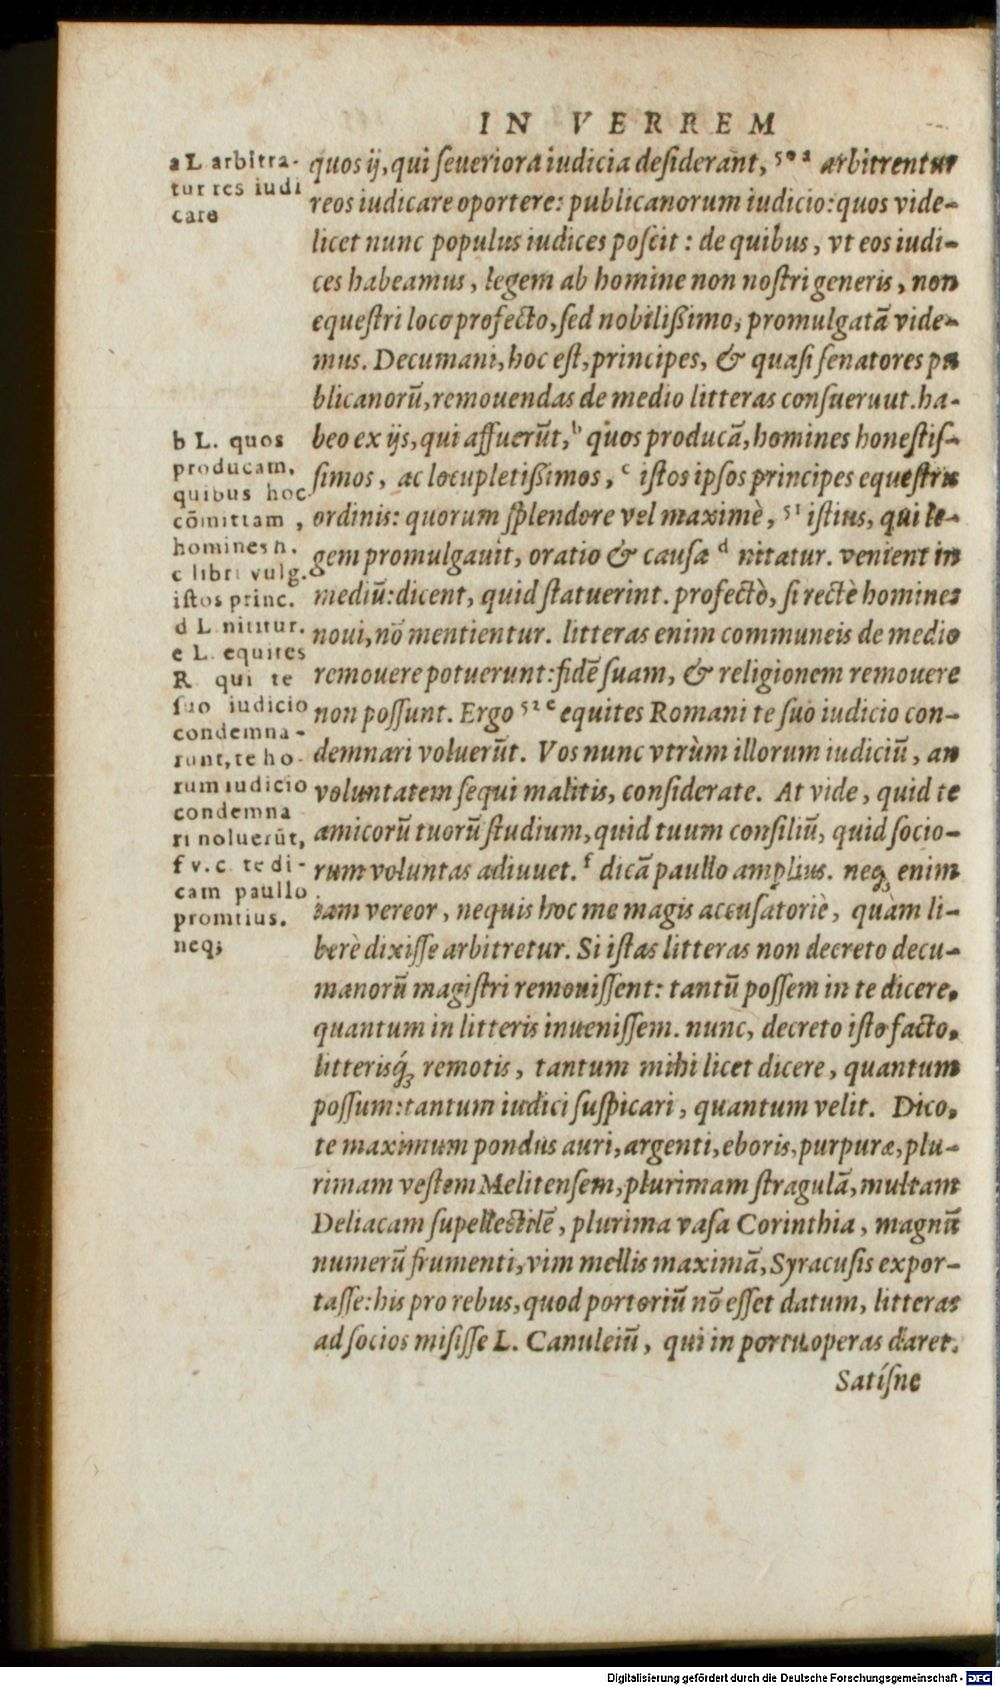 IN VERREM
quos ij, qui seueriora iudicia desiderant, 50 a arbitrentur
reos iudicare oportere: publicanorum iudicio: quos vide-
licet nunc populus iudices poscit : de quibus, vt eos iudi-
ces habeamus, legem ab homine non nostri generis, non
equestri loco profecto, sed nobilißimo, promulgatā vide-
mus. Decumani, hoc est, principes, & quasi senatores pu
blicanorū, remouendas de medio litteras consueruut. ha-
beo ex ijs, qui affuerūt, b quos producā, homines honestis-
simos, ac locupletißimos, c istos ipsos principes equestris
ordinis: quorum splendore vel maximè, 51 istius, qui le-
gem promulgauit, oratio & causa d nitatur. venient in
mediū: dicent, quid statuerint. profectò, si rectè homines
noui, nō mentientur. litteras enim communeis de medio
remouere potuerunt: fidē suam, & religionem remouere
non possunt. Ergo 52 e equites Romani te suo iudicio con-
demnari voluerūt. Vos nunc vtrùm illorum iudiciū, an
voluntatem sequi malitis, considerate. At vide, quid te
amicorū tuorū studium, quid tuum consiliū, quid socio-
rum voluntas adiuuet. f dicā paullo amplius. neq; enim
iam vereor, nequis hoc me magis accusatoriè, quàm li-
berè dixisse arbitretur. Si istas litteras non decreto decu-
manorū magistri remouissent: tantū possem in te dicere,
quantum in litteris inuenissem. nunc, decreto isto facto,
litterisq́; remotis, tantum mihi licet dicere, quantum
possum: tantum iudici suspicari, quantum velit. Dico,
te maximum pondus auri, argenti, eboris, purpuræ, plu-
rimam vestem Melitensem, plurimam stragulā, multam
Deliacam supellectilē, plurima vasa Corinthia, magnū
numerū frumenti, vim mellis maximā, Syracusis expor-
tasse: his pro rebus, quod portoriū nō esset datum, litteras
ad socios misisse L. Canuleiū, qui in portu operas daret.
Satísne
a L arbitra-
tur res iudi
care
b L. quos
producam,
quibus hoc
cōmittam ,
homines n.
c libri vulg.
istos princ.
d L nititur.
e L. equites
R qui te
suo iudicio
condemna-
runt, te ho-
rum iudicio
condemna
ri noluerūt,
f v. c. te di-
cam paullo
promtius.
neq;
Digitalisierung gefördert durch die Deutsche Forschungsgemeinschaft - DFG